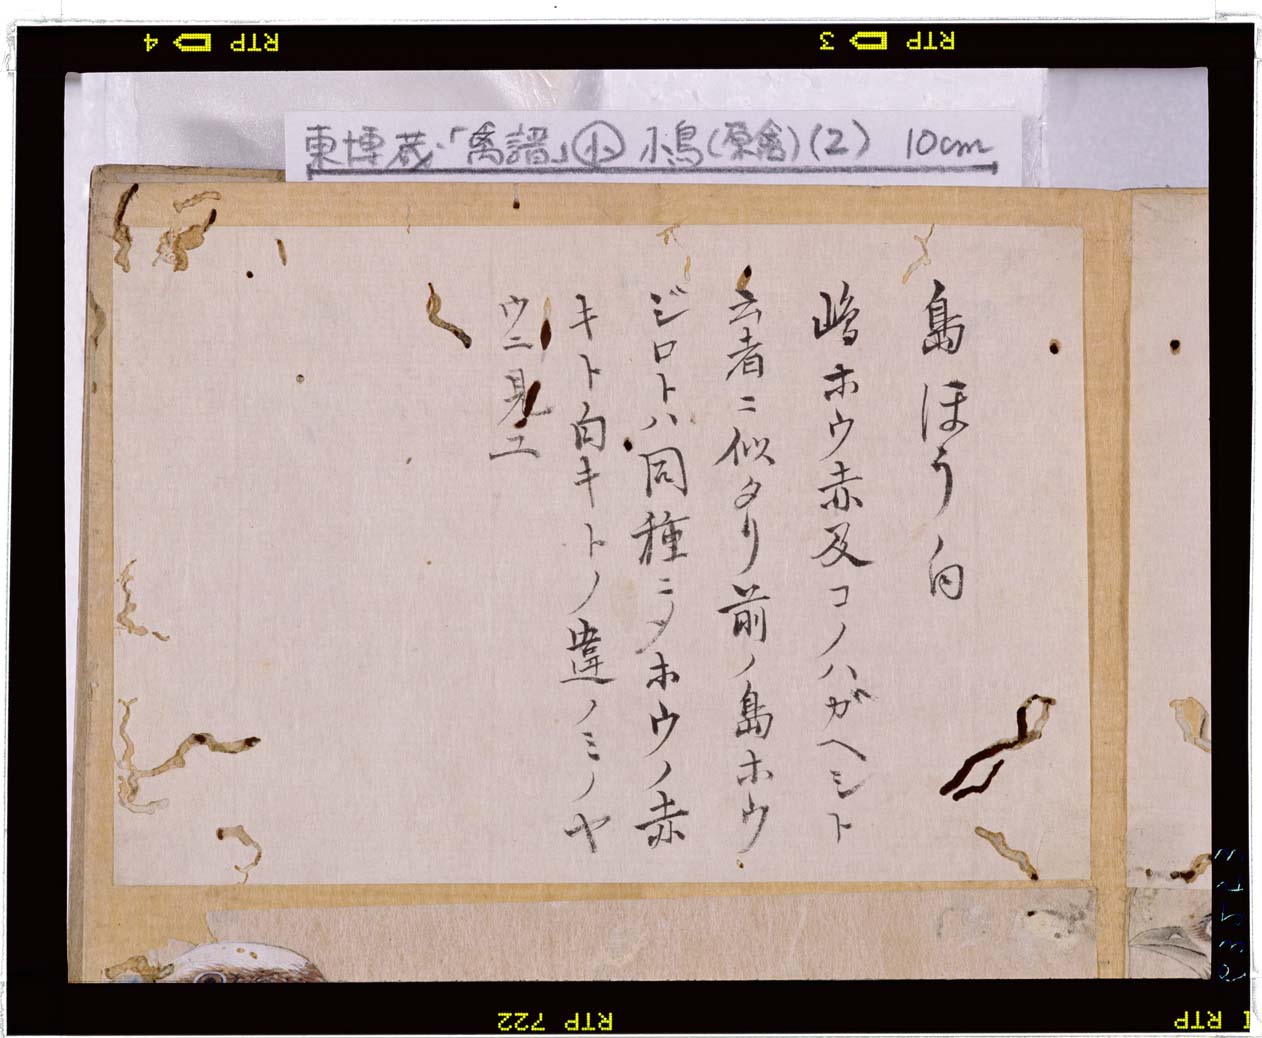 東博蔵・「禽譜」㊥ 小鳥(原禽)(2) 10cm
島ほう白
嶋ホウ赤及コノハガヘシト
云者ニ似タリ前ノ島ホウ
ジロトハ同種ニノホウノ赤
キト白キトノ違ノミノヤ
ウニ見ユ
RTP 4
RTP 3
RTP 722
RTP